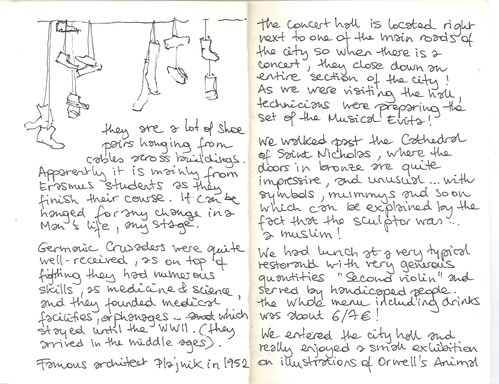 they are a lot of shoe
pairs hanging from
cables across buildings.
Apparently it is mainly from
Erasmus students as they
finish their course. It can be
hanged for any change in a
Man's life, any stage.
Germanic Crusaders were quite
well-received, as on top of
fighting they had numerous
skills, as medicine & science,
and they founded medical
facilities, orphanages... and which
stayed until the WWII. (they
arrived in the middle ages).
Famous architect Plajnik in 1952
The concert hall is located right
next to one of the main roads of
the city so when there is a
concert, they close down an
entire section of the city!
As we were visiting the hall,
technicians were preparing the
set of the Musical Evita!
We walked past the Cathedral
of Saint Nicholas, where the
doors in bronze are quite
impressive, and unusual... with
symbols, mummys and so on
which can be explained by the
fact that the sculptor was...
a muslim!
We had lunch at a very typical
restorand with very generous
quantities "Second violin" and
served by handicaped people.
the whole menu including drinks
was about 6/7€!
We entered the city hall and
really enjoyed a small exhibition
on illustrations of Orwell's Animal